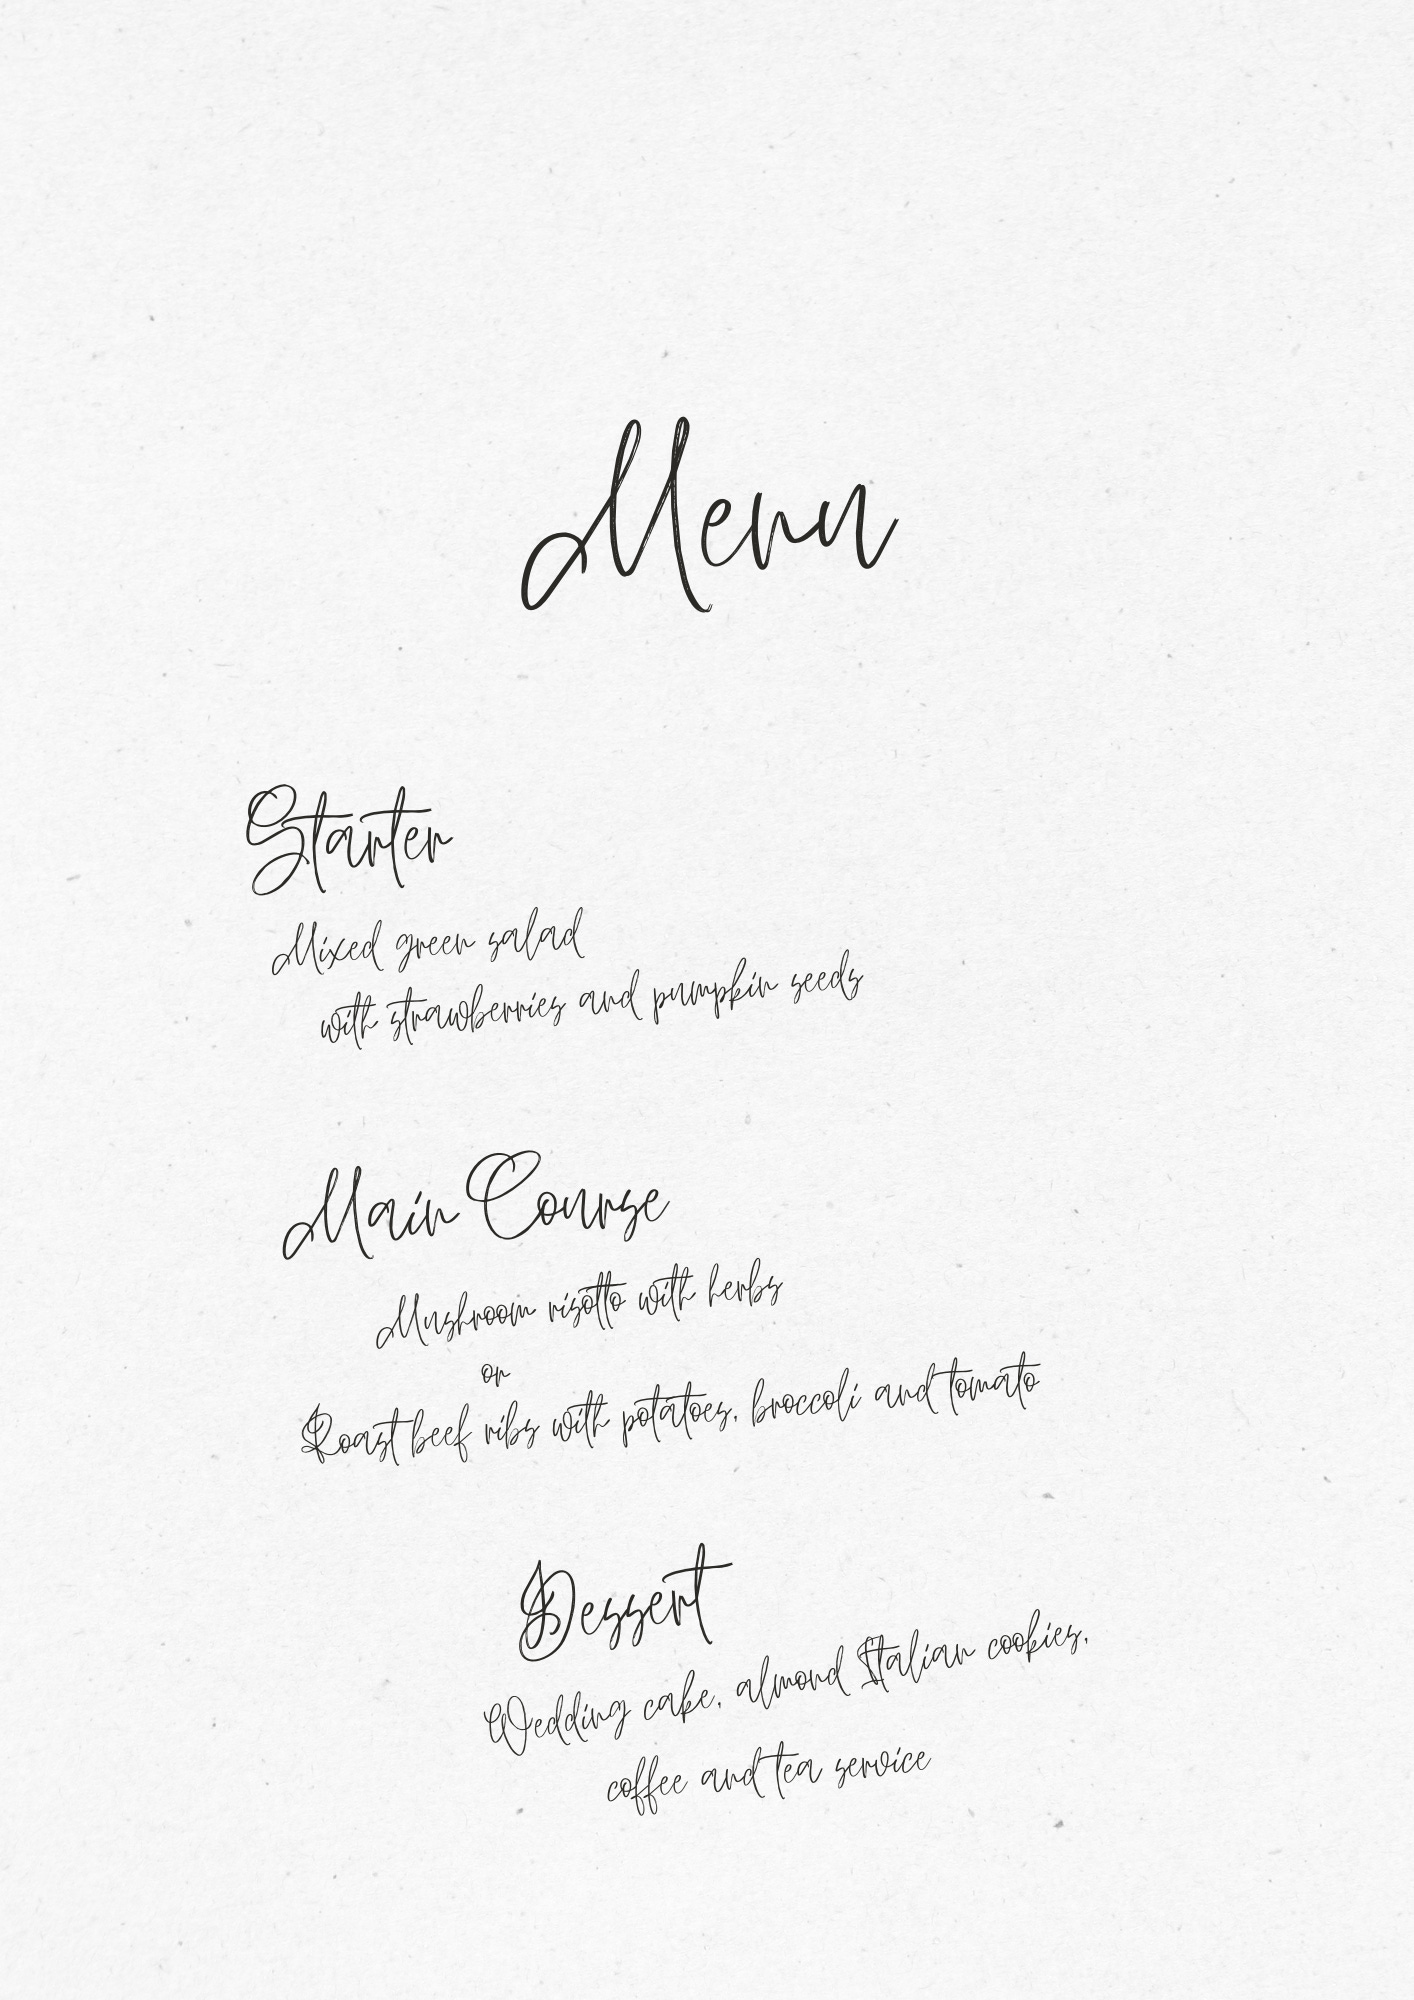 Menu
Starter
Mixed green salad
with strawberries and pumpkin seeds
Main Course
Mushroom risotto with herbs
or
Roast beef ribs with potatoes, broccoli and tomato
Dessert
Wedding cake, almond Italian cookies,
coffee and tea service